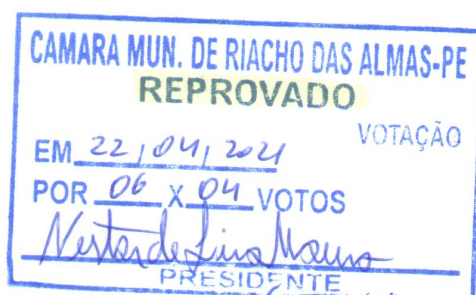 CAMARA MUN. DE RIACHO DAS ALMAS-PE
REPROVADO
VOTAÇÃO
EM 22/04/2021
POR 06 X 04 VOTOS
Nestor de Lira Moura
PRESIDENTE